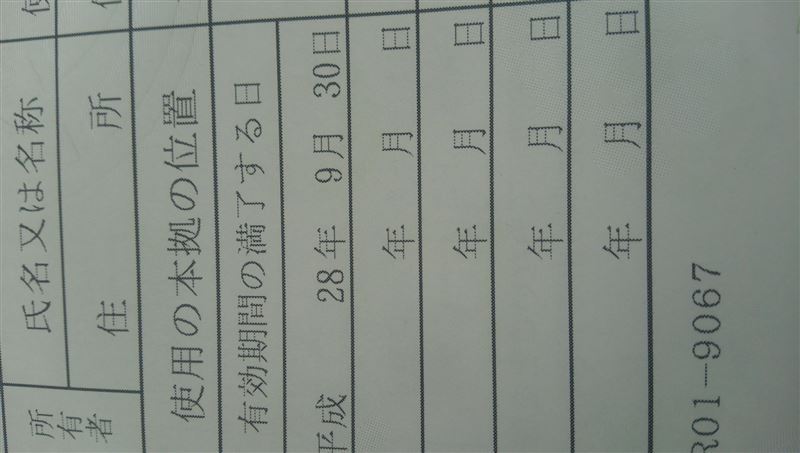 所有者
氏名又は名称
住所
使用の本拠の位置
有効期間の満了する日
平成 28年 9月 30日
年 月 日
年 月 日
年 月 日
年 月 日
R01-9067